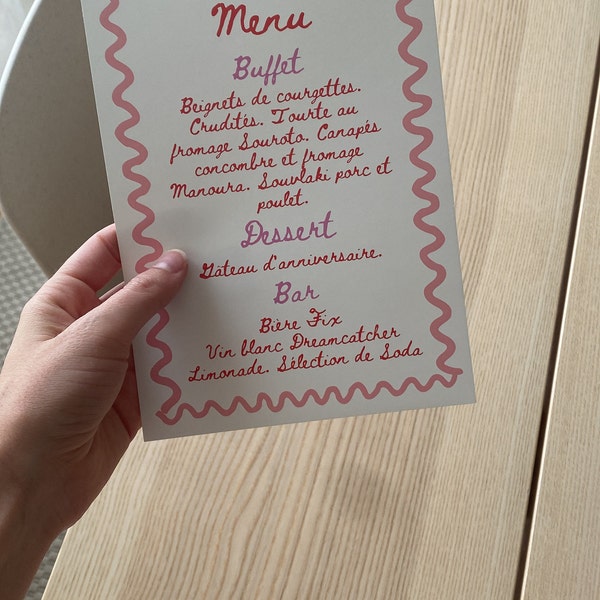 Menu
Buffet
Beignets de courgettes.
Crudités. Tourte au
fromage Souroto. Canapés
concombre et fromage
Manoura. Souvlaki porc et
poulet.
Dessert
Gâteau d'anniversaire.
Bar
Bière Fix
Vin blanc Dreamcatcher
Limonade. Sélection de Soda